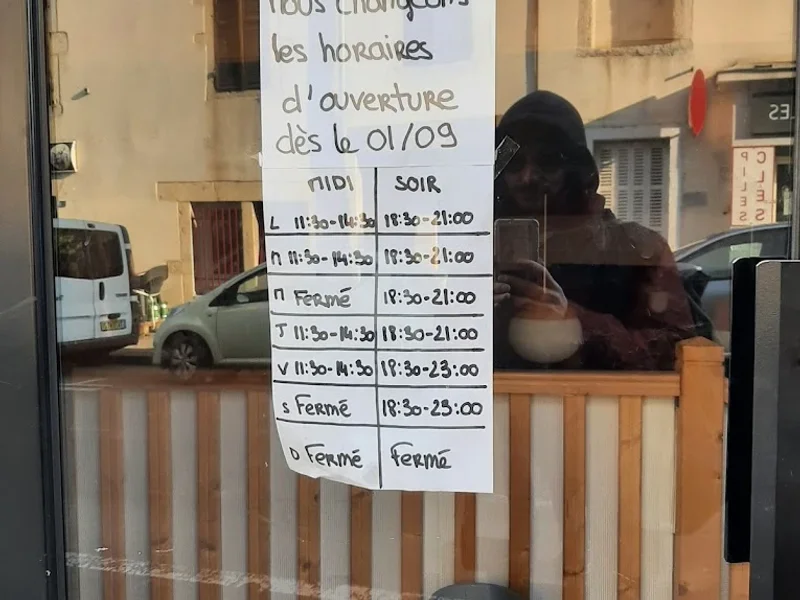 nous changeons
les horaires
d'ouverture
dès le 01/09
MIDI SOIR
L 11:30-14:30 18:30-21:00
M 11:30-14:30 18:30-21:00
M Fermé 18:30-21:00
J 11:30-14:30 18:30-21:00
V 11:30-14:30 18:30-23:00
S Fermé 18:30-23:00
D Fermé Fermé